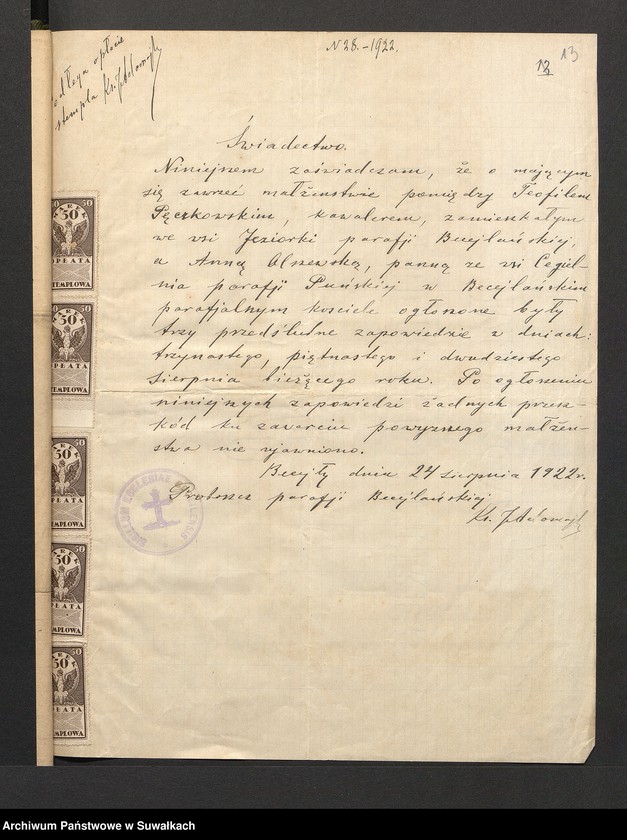 N 28.-1922.
12 13
odłega opłacie
stempla Ks.
Świadectwo.
Niniejszem zaświadczam, że o mającym
się zawrzeć małżeństwie pomiędzy Teofilem
Pęczkowskim, kawalerem, zamieszkałym
we wsi Jeziorki parafji Becejlańskiej,
a Anną Olszewską, panną ze wsi Cegiel-
nia parafji Puńskiej w Becejlańskim
parafjalnym kościele ogłoszone były
trzy przedślubne zapowiedzie w dniach:
trzynastego, piętnastego i dwudziestego
sierpnia bieżącego roku. Po ogłoszeniu
niniejszych zapowiedzi żadnych przesz-
kód ku zawarciu powyższego małżeń-
stwa nie ujawniono.
Becejły dnia 24 sierpnia 1922 r.
Proboszcz parafji Becejlańskiej
Ks.
50 50
MAREK
50
OPŁATA
STEMPLOWA
50
50
OPŁATA
STEMPLOWA
50
50
OPŁATA
STEMPLOWA
50
50
OPŁATA
STEMPLOWA
50
50
OPŁATA
STEMPLOWA
Archiwum Państwowe w Suwałkach